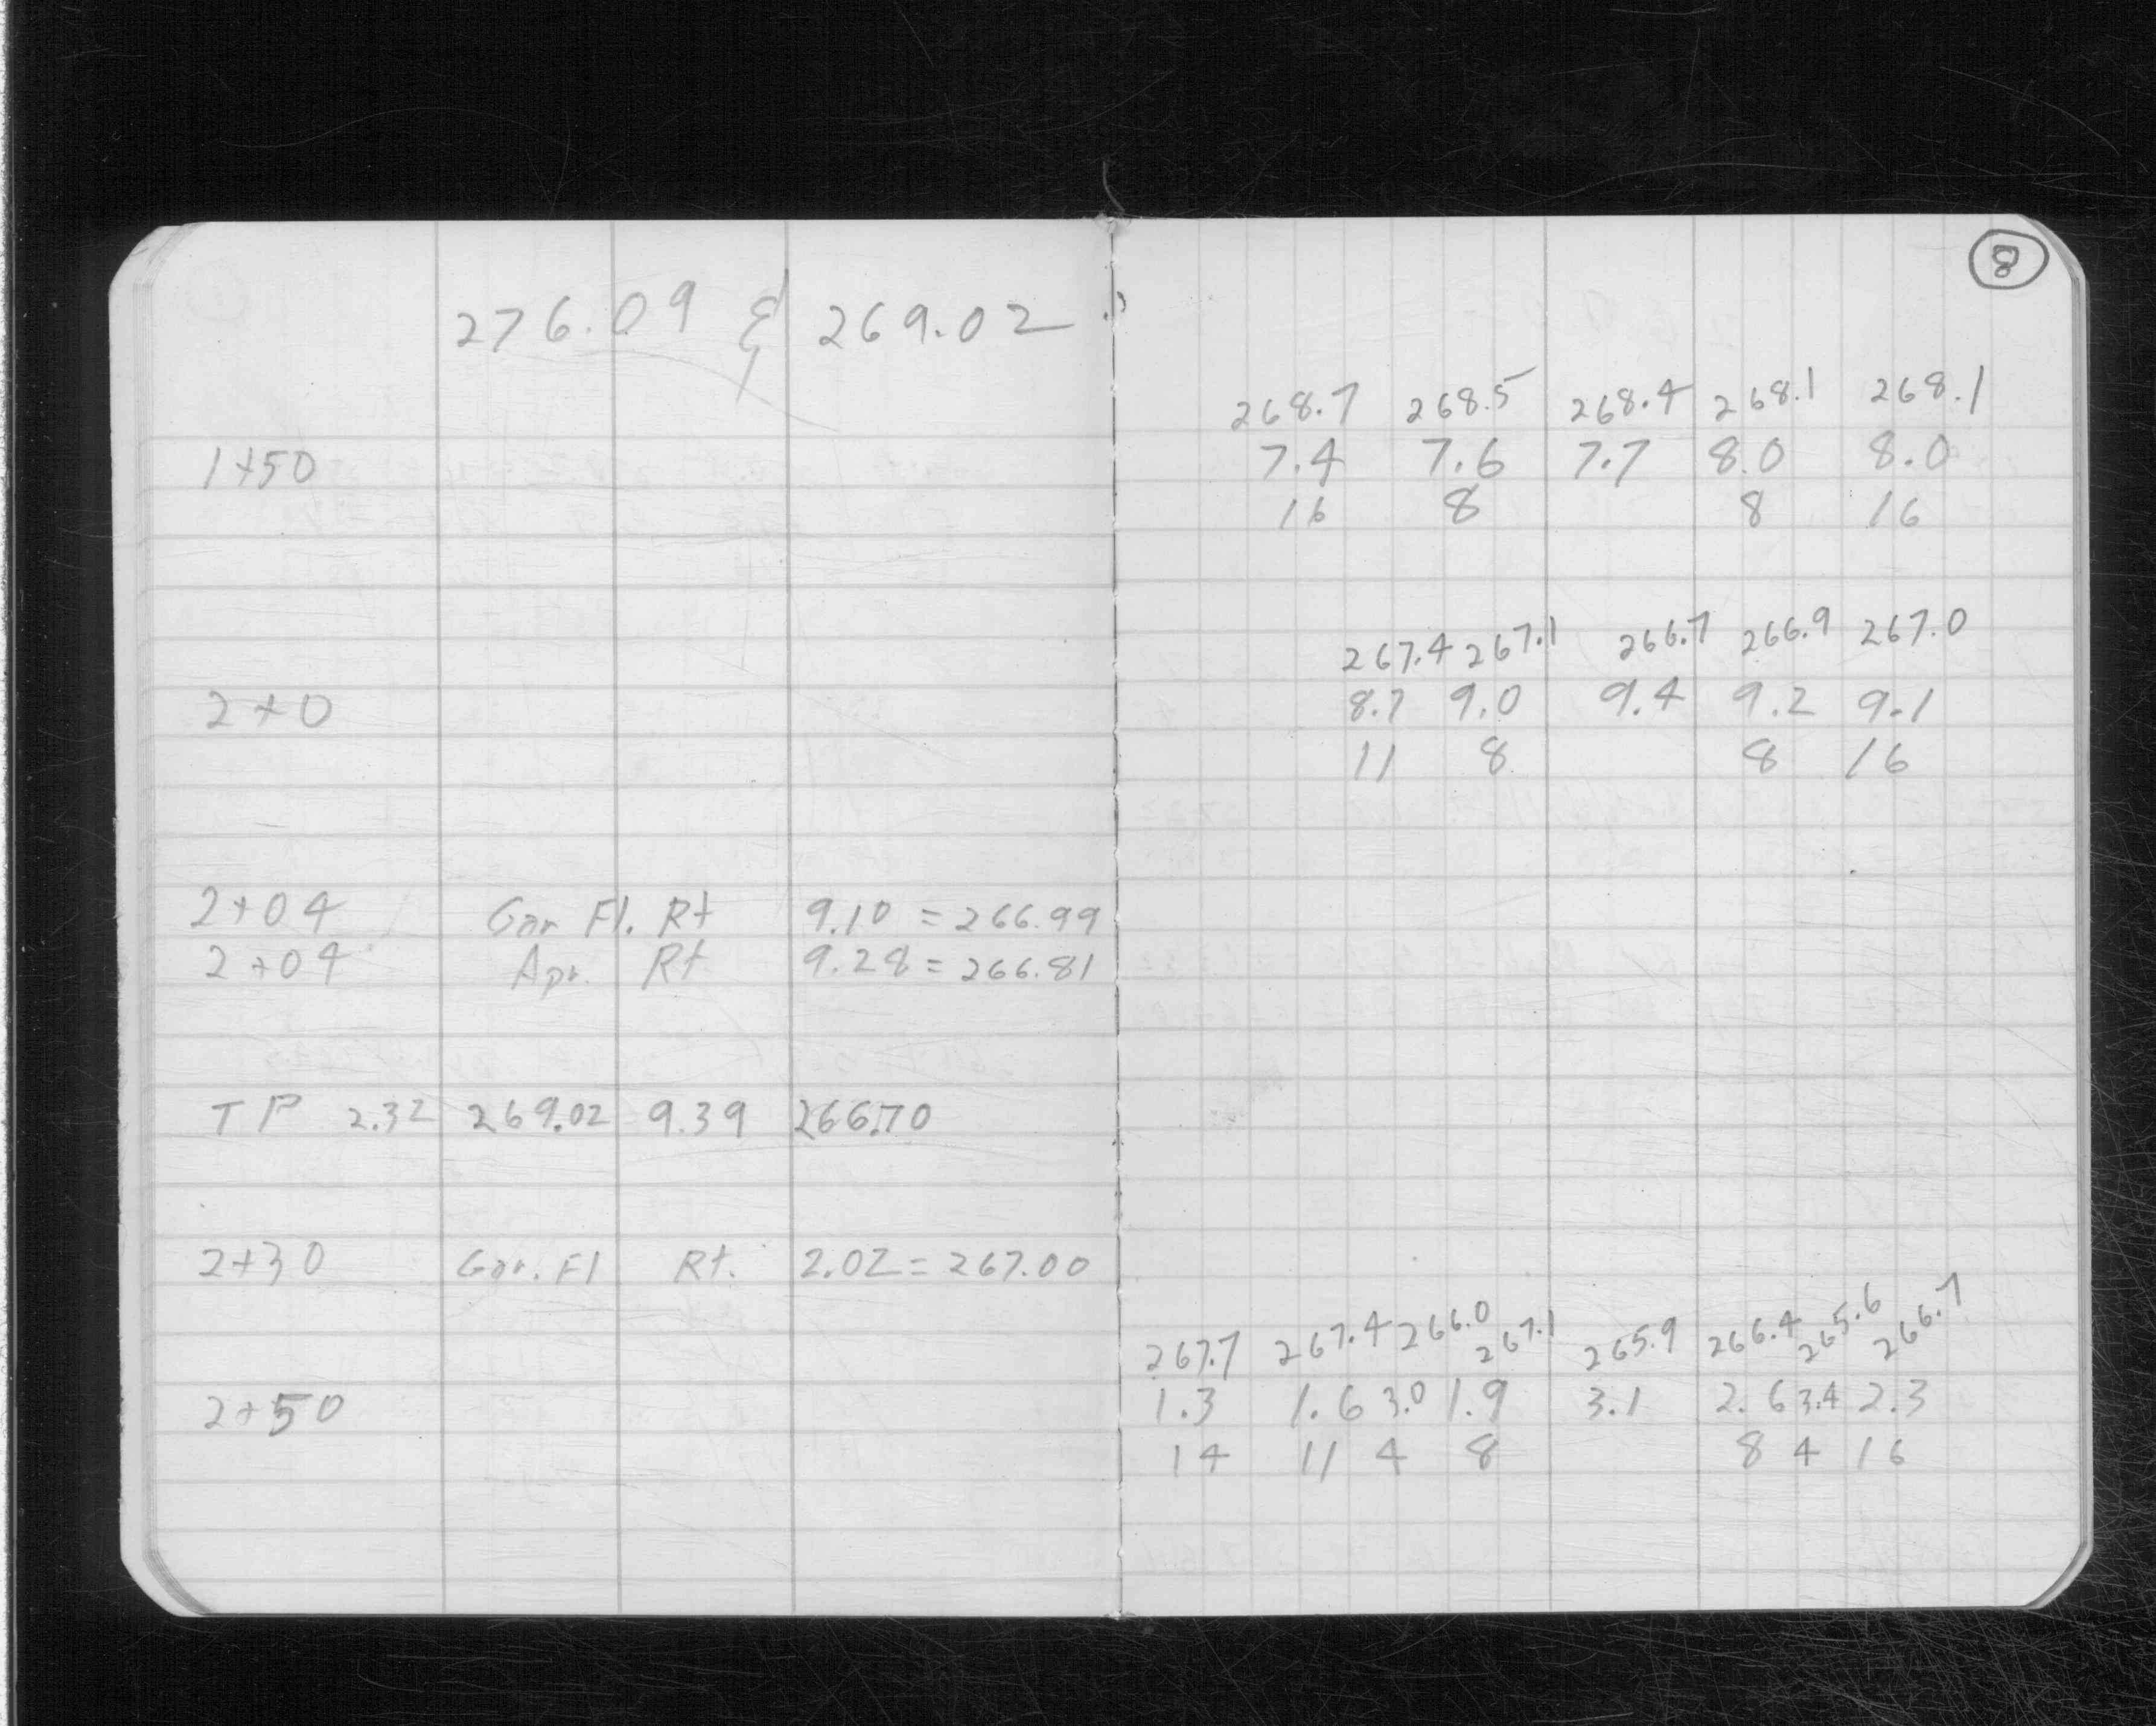 276.09 & 269.02
1+50
2+0
2+04 Gar Fl. Rt 9.10 = 266.99
2+04 Apr. Rt 9.28 = 266.81
TP 2.32 269.02 9.39 266.70
2+30 Gar. Fl Rt. 2.02 = 267.00
2+50
8
268.7 268.5 268.4 268.1 268.1
7.4 7.6 7.7 8.0 8.0
16 8 8 16
267.4 267.1 266.7 266.9 267.0
8.7 9.0 9.4 9.2 9.1
11 8 8 16
267.7 267.4 266.0 267.1 265.9 266.4 265.6 266.7
1.3 1.6 3.0 1.9 3.1 2.6 3.4 2.3
14 11 4 8 8 4 16